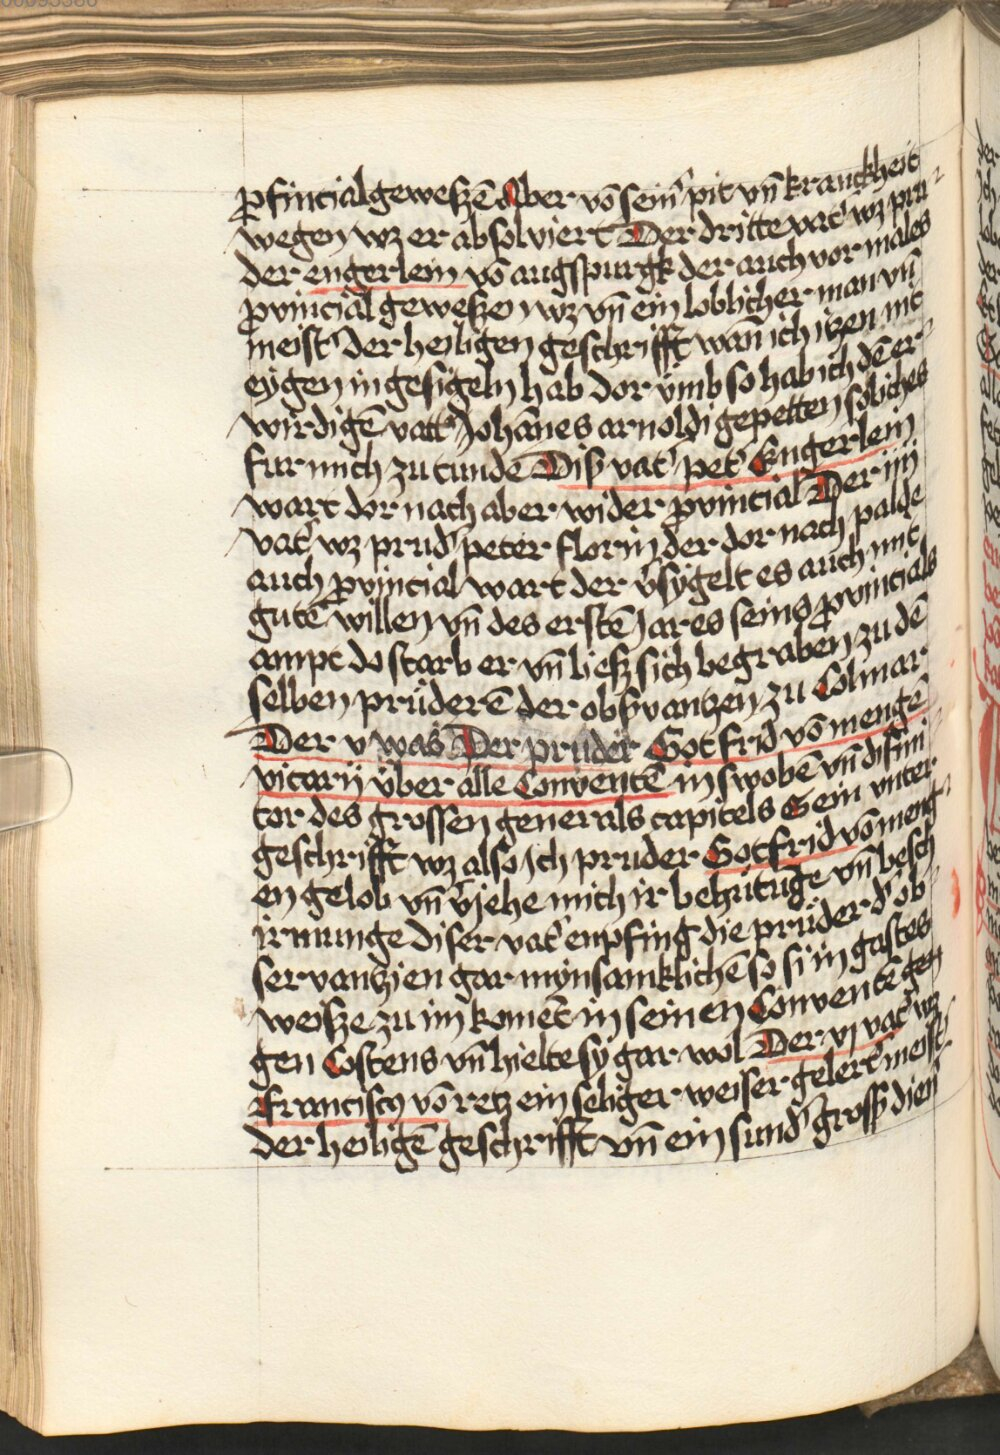 pͦfincial geweszē Aber vō sein͛ pit vn̄ kranckheit
wegen wz er absolviert Der dritte vat͛ wz pru
der engerlein vō augspurgk der auch vor males
pͦvincial geweszen wz vn̄ ein loblicher man vn̄
meist͛ der heiligen geschrifft wan̄ ich itzen nit
eygen ingesigeln hab dor vmb so hab ich dē er
wirdigē vatt͛ Johānes arnoldi gepetten soliches
fur mich zu tunde Dis͛ vat͛ pet͛ Engerlein
wart dor nach aber wider pͦvincial Der iiij
vat͛ wz prud͛ peter florin der dor nach palde
auch pͦvincial wart der v͛sygelt es auch mit
gutē willen vn̄ des erstē Jares seins pͦvincials
ampt do starb er vn̄ liesz sich begraben zu dē
selben prüderē der obs͛vantzen zu Colmar
Der v was Der prüder Gotfrid vō mengē
vicarÿ über alle Conventē in swobē vn̄ difini
tor des grossen generals capitels Sein vnter
geschrifft wz also Ich pruder Gotfrid vō meng
en gelob vn̄ v͛jehe mich ir behütu̅ge vn̄ besch
irmunge Diser vat͛ enpfing die prüder d͛ ob
servantzien gar mynsamklichē so si in gastes
weisze zu im komēt in seinen Conventē gen
gen Costens vn̄ hielte sy gar wol Der vj vat͛ wz
Franciscȝ vō retz ein seliger weiser gelert͛ meist͛
der heiligē geschrifft vn̄ ein sund͛ gross͛ dien͛